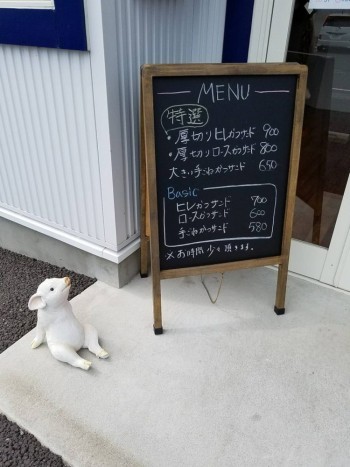 MENU
特選
・厚切りヒレカツサンド 900
・厚切りロースカツサンド 800
大きい手ごねカツサンド 650
Basic
ヒレカツサンド 700
ロースカツサンド 600
手ごねカツサンド 580
※お時間少々頂きます。